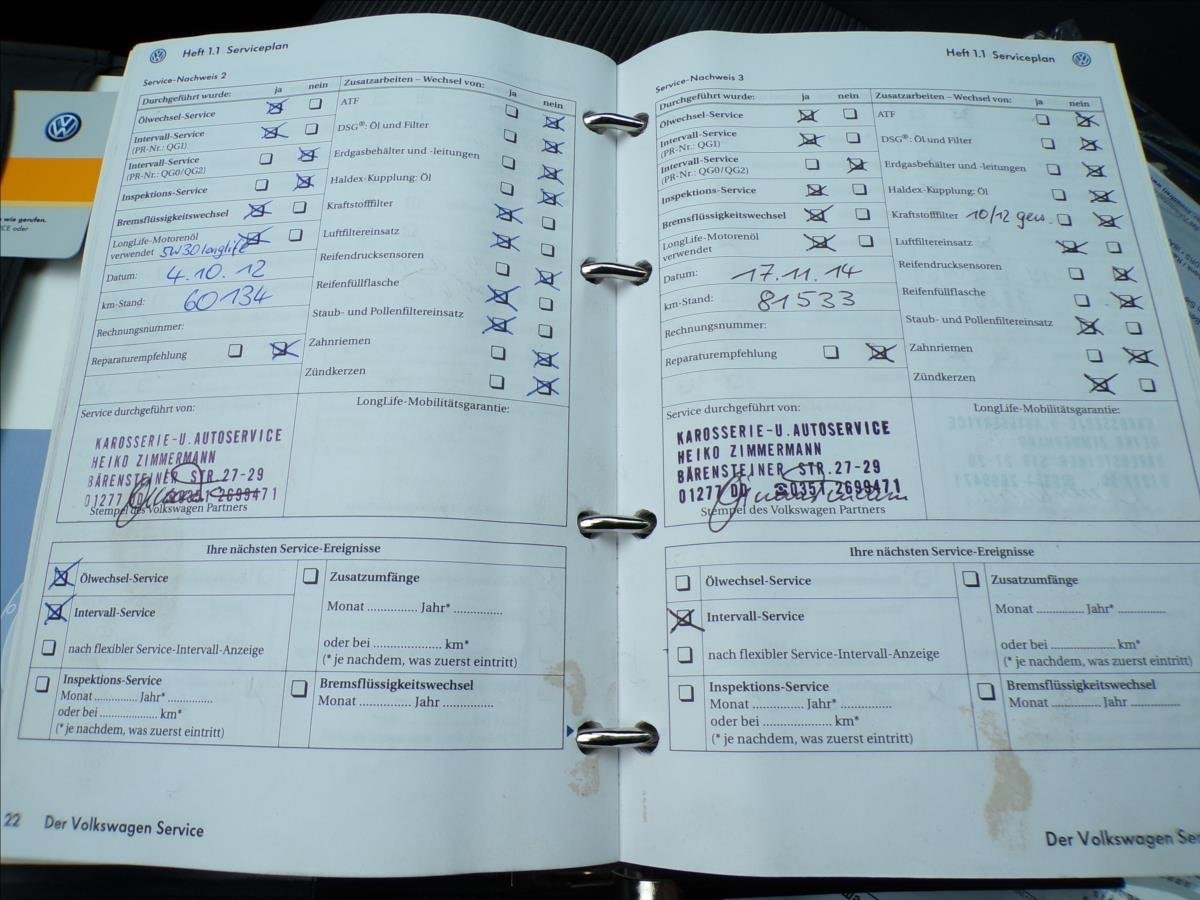 Heft 1.1 Serviceplan
Service-Nachweis 2
Durchgeführt wurde: ja nein
Ölwechsel-Service
Intervall-Service
(PR-Nr.: QG1)
Intervall-Service
(PR-Nr.: QG0/QG2)
Inspektions-Service
Bremsflüssigkeitswechsel
LongLife-Motorenöl
verwendet 5W30 longlife
Datum: 4.10.12
km-Stand: 60134
Rechnungsnummer:
Reparaturempfehlung
Zusatzarbeiten – Wechsel von: ja nein
ATF
DSG®: Öl und Filter
Erdgasbehälter und -leitungen
Haldex-Kupplung: Öl
Kraftstofffilter
Luftfiltereinsatz
Reifendrucksensoren
Reifenfüllflasche
Staub- und Pollenfiltereinsatz
Zahnriemen
Zündkerzen
Service durchgeführt von:
KAROSSERIE-U. AUTOSERVICE
HEIKO ZIMMERMANN
BÄRENSTEINER STR. 27-29
01277 DD ☎0351 2699471
Stempel des Volkswagen Partners
LongLife-Mobilitätsgarantie:
Ihre nächsten Service-Ereignisse
Ölwechsel-Service
Intervall-Service
nach flexibler Service-Intervall-Anzeige
Inspektions-Service
Monat .............. Jahr* ..............
oder bei .................... km*
(* je nachdem, was zuerst eintritt)
Zusatzumfänge
Monat .............. Jahr* ..............
oder bei .................... km*
(* je nachdem, was zuerst eintritt)
Bremsflüssigkeitswechsel
Monat .............. Jahr ..............
22 Der Volkswagen Service
Heft 1.1 Serviceplan
Service-Nachweis 3
Durchgeführt wurde: ja nein
Ölwechsel-Service
Intervall-Service
(PR-Nr.: QG1)
Intervall-Service
(PR-Nr.: QG0/QG2)
Inspektions-Service
Bremsflüssigkeitswechsel
LongLife-Motorenöl
verwendet
Datum: 17.11.14
km-Stand: 81533
Rechnungsnummer:
Reparaturempfehlung
Zusatzarbeiten – Wechsel von: ja nein
ATF
DSG®: Öl und Filter
Erdgasbehälter und -leitungen
Haldex-Kupplung: Öl
Kraftstofffilter 10/12 gew.
Luftfiltereinsatz
Reifendrucksensoren
Reifenfüllflasche
Staub- und Pollenfiltereinsatz
Zahnriemen
Zündkerzen
Service durchgeführt von:
KAROSSERIE-U. AUTOSERVICE
HEIKO ZIMMERMANN
BÄRENSTEINER STR. 27-29
01277 DD ☎0351 2699471
Stempel des Volkswagen Partners
LongLife-Mobilitätsgarantie:
Ihre nächsten Service-Ereignisse
Ölwechsel-Service
Intervall-Service
nach flexibler Service-Intervall-Anzeige
Inspektions-Service
Monat .............. Jahr* ..............
oder bei .................... km*
(* je nachdem, was zuerst eintritt)
Zusatzumfänge
Monat .............. Jahr* ..............
oder bei .................... km*
(* je nachdem, was zuerst eintritt)
Bremsflüssigkeitswechsel
Monat .............. Jahr ..............
Der Volkswagen Ser
wie gerufen.
CE oder